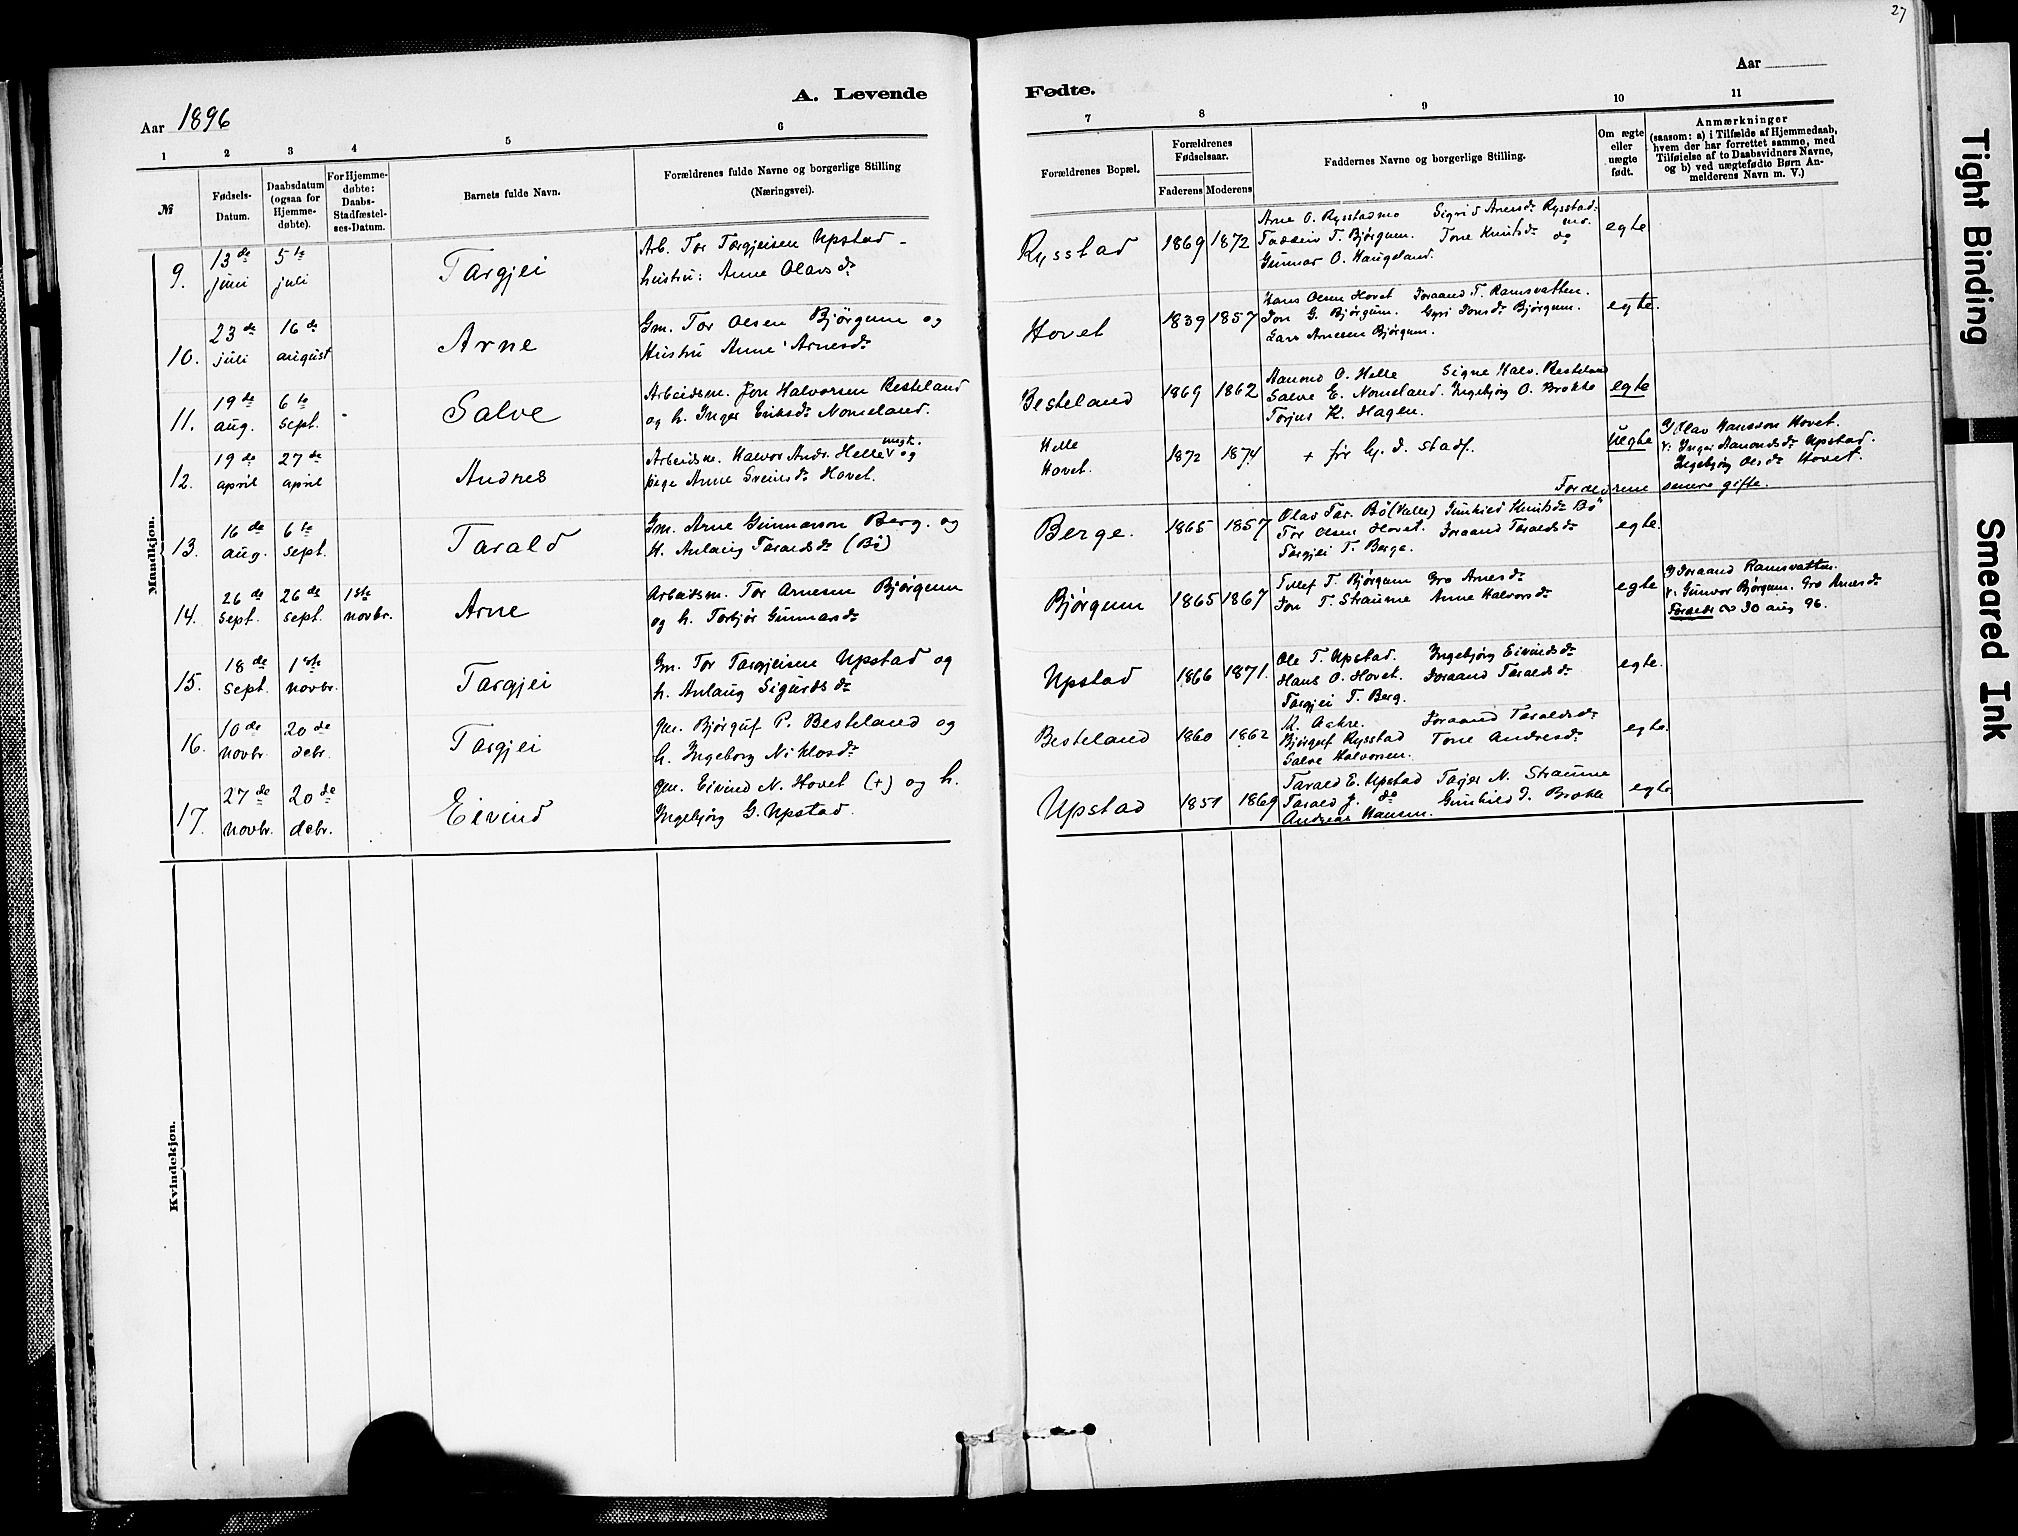 27
Aar 1896
A. Levende
Fødte.
Aar
1 2 3 4 5 6
7 8 9 10 11
№
Fødsels-Datum.
Daabsdatum (ogsaa for Hjemmedøbte).
For Hjemmedøbte: Daabs-Stadfæstelses-Datum.
Barnets fulde Navn.
Forældrenes fulde Navne og borgerlige Stilling
(Næringsvei).
Forældrenes Bopæl.
Forældrenes Fødselsaar.
Faderens Moderens
Faddernes Navne og borgerlige Stilling.
Om ægte eller uægte født.
Anmærkninger
(saasom: a) i Tilfælde af Hjemmedaab, hvem der har forrettet samme, med Tilføielse af to Daabsvidners Navne, og b) ved uægtefødte Børn Anmelderens Navn m. V.)
Mandkjøn.
9. 13de juni 5te juli Targjei
Arb. Tor Torgjeisen Upstad -
hustru: Anne Olavsdr
Rysstad 1869 1872
Arne O. Rysstadmo Sigrid Arnesdr Rysstadmo.
T. Bjørgum. Tone Knutsdr og
Gunnar O. Haugeland.
egte
10. 23de juli 16de august Arne
Gm. Tor Olsen Bjørgum og
Hustru Anne Arnesdr
Hovet 1839 1857
Hans Olsen Hovet Joraand T. Ramsvatten.
Jon G. Bjørgum. Gyri Jonsdr Bjørgum.
Lars Arnesen Bjørgum.
egte.
11. 19de aug. 6te sept. Salve
Arbeidsm. Jon Halvorsen Besteland
og h. Inger Eriksdr Nomeland.
Besteland 1869 1862
Aanond O. Helle Signe Halv. Besteland
Salve E. Nomeland. Ingebjøg O. Brokke
Torjus K. Hagen.
egte
12. 19de april 27de april Andres
Arbeidsm. Halvor Andr. Helle ungk. og
pige Anne Sveinsdr Hovet.
Helle
Hovet.
1872 1874
+ før Gj. d. stadf.
Uegte
Olav Hansson Hovet.
v: Inger Aanondsdr Upstad.
Ingebjøg Olsdr Hovet.
Forældrene senere gifte.
13. 16de aug. 6te sept. Tarald
Gm. Arne Gunnarson Berg. og
h. Anlaug Taraldsdr (Bø)
Berge. 1865 1857
Olav Tar. Bö (Valle) Gunhild Knutsdr Bö
Tor Olsen Hovet. Joraand Taraldsdr
Targjei T. Berge.
egte.
14. 26de sept. 26de sept. 1ste novbr. Arne
Arbeidsm. Tor Arnesen Bjørgum
og h. Torbjør Gunnarsdr
Bjørgum 1865 1867
Tollef T. Bjørgum Gro Arnesdr
Jon T. Straume Anne Halvorsdr
egte
Joraand Ramsvatten.
v: Gunvor Bjørgum. Gro Arnesdr
30 aug 96.
15. 18de sept. 1ste novbr. Targjei
Gm. Tor Targjeisen Upstad og
h. Anlaug Sigurdsdr
Upstad 1866 1871.
Ole T. Upstad. Ingebjøg Eivindsdr
Hans O. Hovet. Joraand Taraldsdr
Targjei T. Berg.
egte.
16. 10de novbr. 20de debr. Targjei
Gm. Bjørguf P. Besteland og
h. Ingeborg Niklosdr
Besteland 1860 1862
K. Aakre. Joraand Taraldsdr
Bjørguf Rysstad Tone Andresdr
Salve Halvorsen.
egte.
17. 27de novbr. 20de debr. Eivind
Gm. Eivind N. Hovet (+) og h.
Ingebjøg G. Upstad.
Upstad 1851 1869
Tarald E. Upstad Tager N. Straume
Tarald J. do Gunhild J. Brokke
Andreas Hansen.
egte
Kvindekjøn.
Tight Binding
Smeared Ink